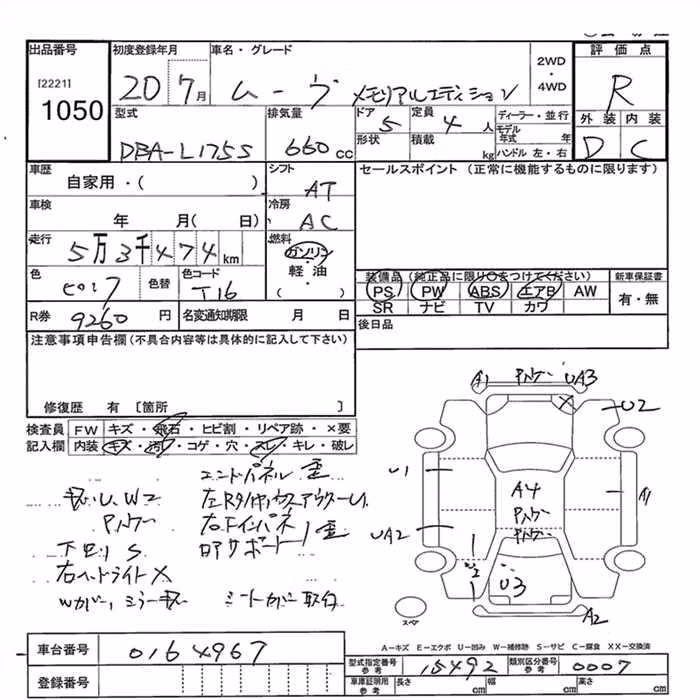 出品番号 初度登録年月 車名・グレード 2WD・4WD 評価点
[2221] 1050 20 7月 ムーヴ メモリアルエディション R
型式 排気量 ドア 定員 ディーラー・並行 外装 内装
DBA-L175S 660cc 5 4人 モデル年式 年 D C
形状 積載 kg ハンドル 左・右
車歴 シフト セールスポイント (正常に機能するものに限ります)
自家用・( ) AT
車検 冷房
年 月( 日) AC
走行 燃料
5万3千474km ガソリン・軽油・( )
装備品 (純正品に限り○をつけてください) 新車保証書
色 色替 色コード PS PW ABS エアB AW 有・無
ピンク T16 SR ナビ TV カワ
R券 9260円 名変通知期限 月 日 後日品
注意事項申告欄 (不具合内容等は具体的に記入して下さい)
修復歴 有 [箇所 ]
検査員 FW キズ・飛石・ヒビ割・リペア跡・×要
記入欄 内装 キズ・汚れ・コゲ・穴・スレ・キレ・破レ
A1 Pパケー UA3
U2
エンドパネル 歪
U1 A4 A1
U, W2
Pパケー Pパケー
UA2 Pパケー
下回リS
右ヘッドライトX
U2 U3
Wカバー, ミラー シートカバー取付
スペア A2
車台番号 0164967
A-キズ E-エクボ U-凹み W-補修跡 S-サビ C-腐食 XX-交換済
型式指定番号 参考 15492 類別区分番号 参考 0007
登録番号 車庫証明用 参考 長さ cm 幅 cm 高さ cm